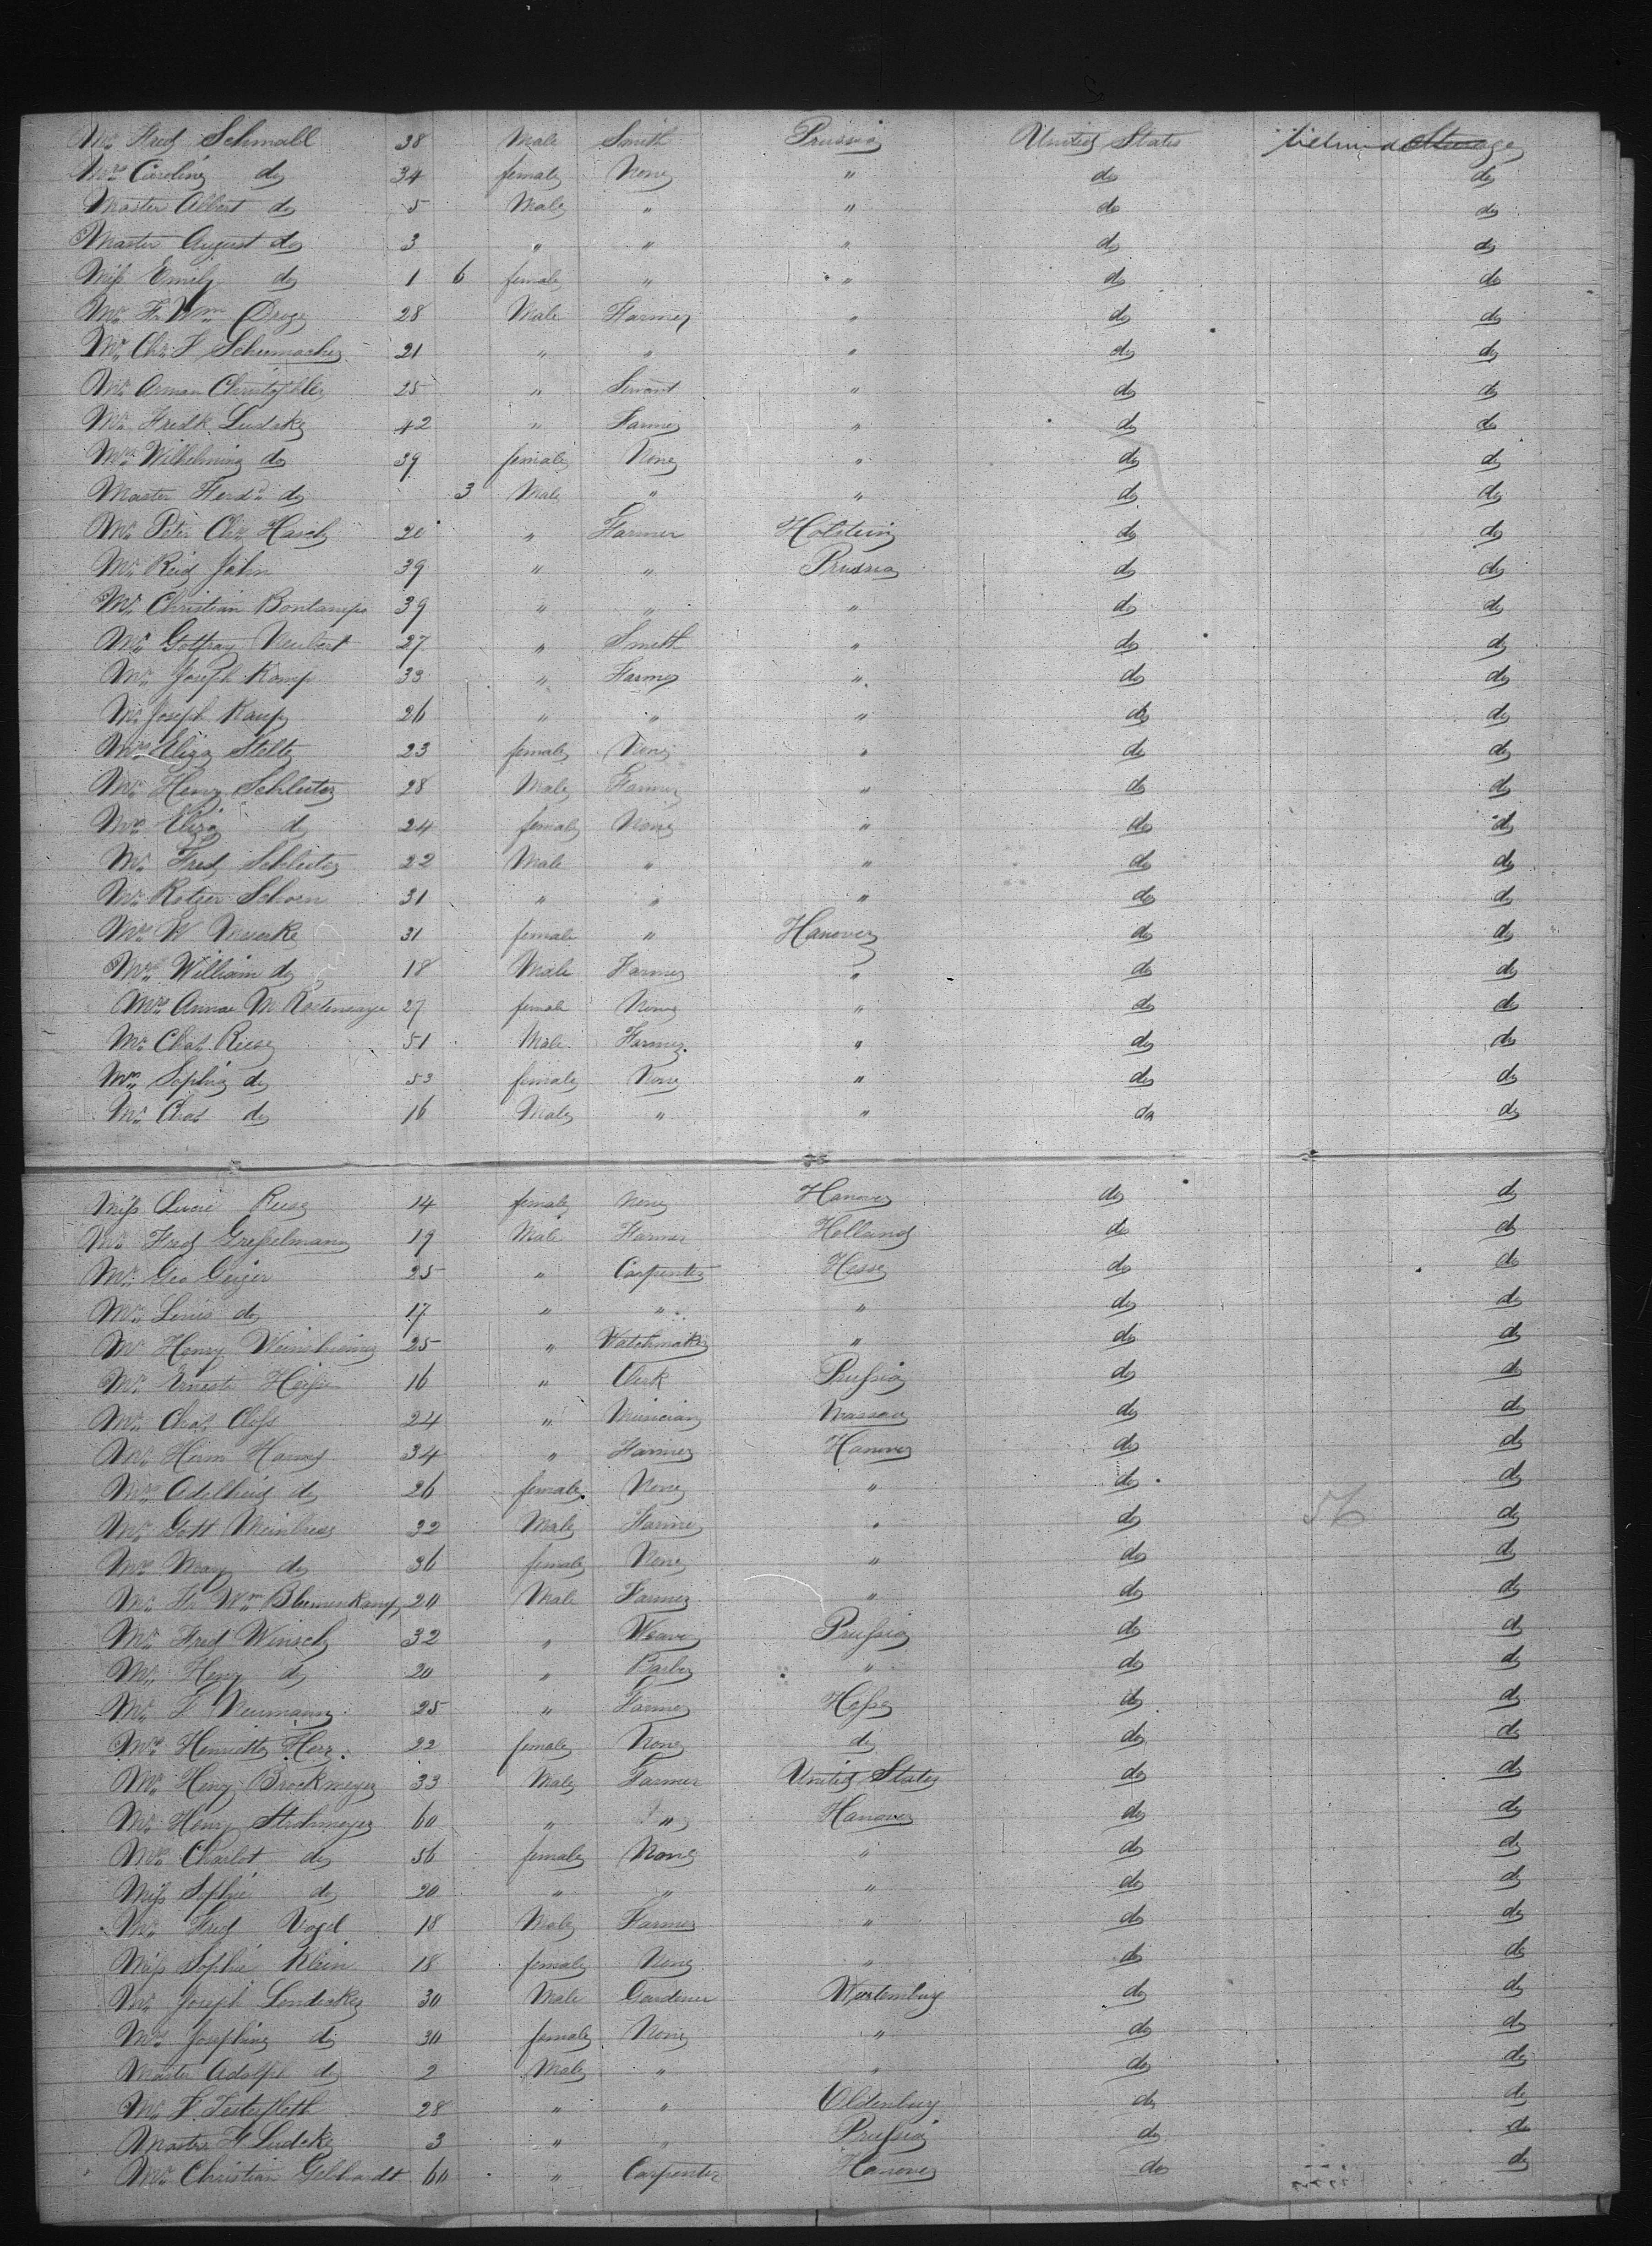 Mr Fred Schmall 38 Male Smith Prussia United States Steerage
Mrs Caroline do 34 female None " do do
Master Albert do 5 Male " " do do
Master August do 3 " " " do do
Miss Emily do 1 6 female " " do do
Mr Fr Wm Droge 28 Male Farmer " do do
Mr Chr F Schumacher 21 " " " do do
Mr Arman 25 " Servant " do do
Mr Fredk Ludeke 42 " Farmer " do do
Mrs Wilhelmine do 39 female None " do do
Master Ferdn do 3 Male " " do do
Mr Peter Chr Hasch 20 " Farmer Holstein do do
Mr Reid John 39 " " Prussia do do
Mr Christian Bontamps 39 " " " do do
Mr Gottfray Neubert 27 " Smith " do do
Mr Joseph Kamp 33 " Farmer " do do
Mr Joseph Kaup 26 " " " do do
Mrs Eliza Stelte 23 female None " do do
Mr Heny Schleuter 28 Male Farmer " do do
Mrs Eliza do 24 female None " do do
Mr Fred Schleuter 22 Male " " do do
Mr Rotger Schoen 31 " " " do do
Mrs W 31 female " Hanover do do
Mr William do 18 Male Farmer " do do
Mrs Annae M 27 female None " do do
Mr Chas Reese 51 Male Farmer " do do
Mrs Sophie do 53 female None " do do
Mr Chas do 16 Male " " do do
Miss Lucie Reese 14 female None Hanover do do
Mr Fred Gresselmann 19 Male Farmer Holland do do
Mr Geo Geiger 25 " Carpenter Hesse do do
Mr Louis do 17 " " " do do
Mr Henry 25 " Watchmaker " do do
Mr Erneste 16 " Clerk Prussia do do
Mr Chas Closs 24 " Musician Nassau do do
Mr Herm Harms 34 " Farmer Hanover do do
Mrs Adelheid do 26 female None " do do
Mr Gott 32 Male Farmer " do 56 do
Mrs Mary do 36 female None " do do
Mr Fr Wm Blumenkamp 20 Male Farmer " do do
Mr Fred Winsch 32 " Weaver Prussia do do
Mr Heny do 20 " Barber " do do
Mr F Neumann 25 " Farmer Hesse do do
Mrs Henriette Herz 22 female None do do do
Mr Heny Brockmeyer 33 Male Farmer United States do do
Mr Henry Strohmeyer 60 " " Hanover do do
Mrs Charlot do 56 female None " do do
Miss Sophie do 20 " " " do do
Mr Fred Vogel 18 Male Farmer " do do
Miss Sophie Klein 18 female None " do do
Mr Joseph 30 Male Gardener Wurtemburg do do
Mrs Josephine do 30 female None " do do
Master Adolph do 2 Male " " do do
Mr F Testerfleth 28 " " Oldenburg do do
Master F Ludeke 3 " " Prussia do do
Mr Christian Gebhardt 60 " Carpenter Hanover do do